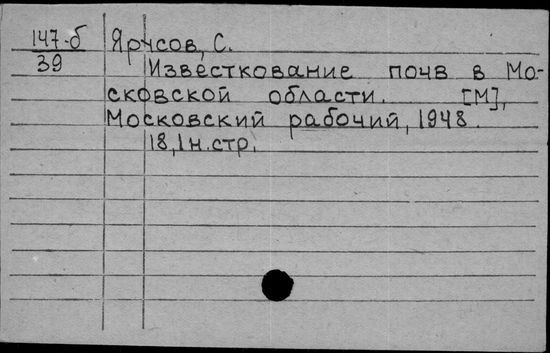 147-б Ярусов, С.
39
Известкование почв в Мо-
сковской области. [М],
Московский рабочий, 1948.
18, 1 н. стр.